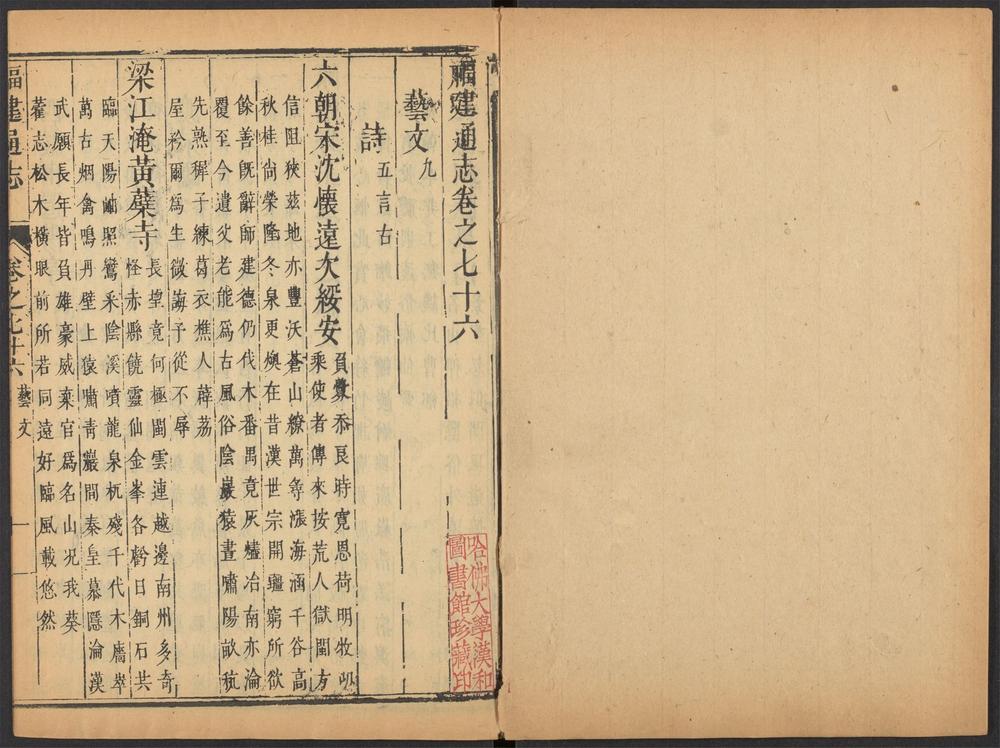 福建通志卷之七十六
哈佛大學漢和
圖書館珍藏印
藝文九
詩 五言古
六朝宋沈懷遠次綏安
負釁忝良時寬恩荷明牧叨
乘使者傳來按荒人獄閩方
信阻狹茲地亦豐沃蒼山繚萬等漲海涵千谷高
秋桂尚榮隆冬泉更燠在昔漢世宗開疆窮所欲
餘善旣辭師建德仍伐木番禺竟灰燼冶南亦淪
覆至今遺父老能爲古風俗陰巖猿晝嘯陽畝秔
先熟穉子練葛衣樵人薜荔
屋矜爾爲生微誨予從不辱
梁江淹黃蘗寺
長望竟何極閩雲連越邊南州多奇
怪赤縣饒靈仙金峯各虧日銅石共
臨天陽岫照鸞采陰溪噴龍泉杌殘千代木廧崒
萬古烟禽鳴丹壁上猿嘯靑巖間秦皇慕隱淪漢
武願長年皆負雄豪威棄官爲名山况我葵
藿志松木橫眼前所若同遠好臨風載悠然
福建通志 卷之七十六 藝文 一